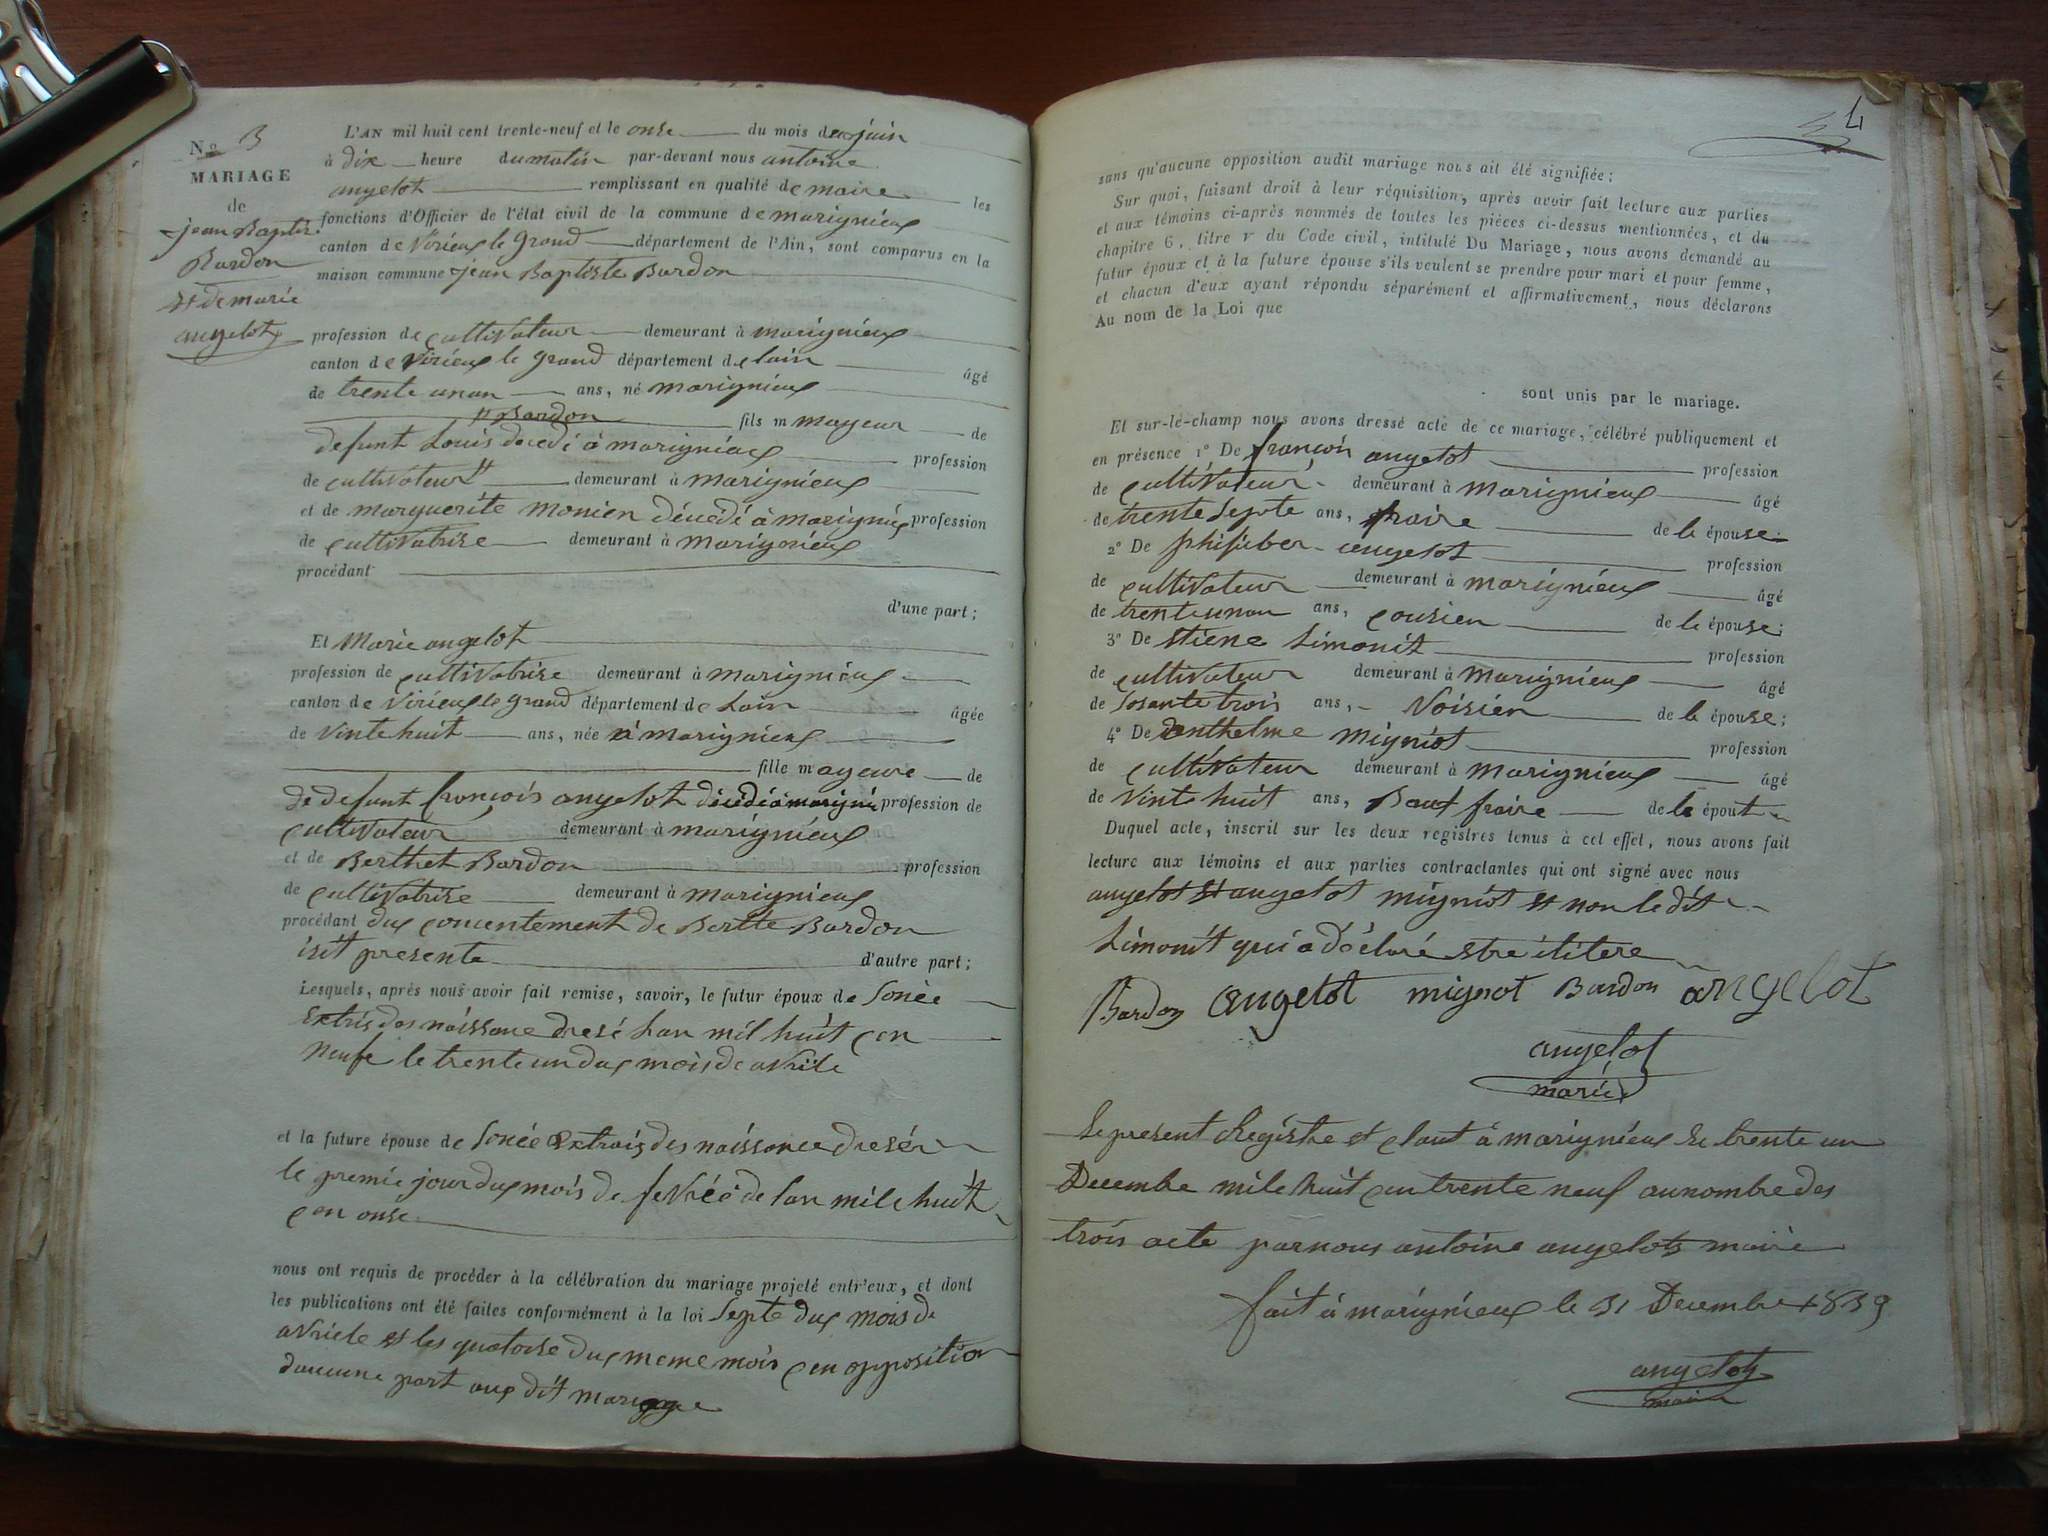 No 3
MARIAGE
de
jean Baptis
Bardon
et de marie
angelot
L'AN mil huit cent trente-neuf et le onse du mois de juin
à dix heure du matin par-devant nous antoine
angelot remplissant en qualité de maire les
fonctions d'Officier de l'état civil de la commune de marignieux
canton de Virieux le grand département de l'Ain, sont comparus en la
maison commune jean Baptiste Bardon
profession de cultivateur demeurant à marignieux
canton de Virieux le grand département de lain âgé
de trente unan ans, né marignieux
Bardon fils m mayeur de
defunt Louis decedé à marignieux profession
de cultivateur demeurant à marignieux
et de marguerite monien décédé à marignieux profession
de cultivatrise demeurant à marignieux
procédant
d'une part;
Et Marie angelot
profession de cultivatrise demeurant à marignieux
canton de Virieux le grand département de Lain âgée
de vinte huit ans, née à marignieux
fille m ayeure de
de defunt françois angelot décédé à marigni profession de
cultivateur demeurant à marignieux
et de Berthet Bardon profession
de cultivatrise demeurant à marignieux
procédant dux concentement de Bertte Bardon
isit presente d'autre part;
Lesquels, après nous avoir fait remise, savoir, le futur époux de sonée
Extris des naissance dresé lan mil huit cen
neufe le trente un dux mois de avrile
et la future épouse de sonée Extrais des naissance dresér
le premie jour dux mois de fevréé de lan mile huit
cen onse
nous ont requis de procéder à la célébration du mariage projeté entr'eux, et dont
les publications ont été faites conformément à la loi septe dux mois de
avriele et les quatorse dux meme mois cen opposition
daucune part aux dit mariage
4
sans qu'aucune opposition audit mariage nous ait été signifiée;
Sur quoi, faisant droit à leur réquisition, après avoir fait lecture aux parties
et aux témoins ci-après nommés de toutes les pièces ci-dessus mentionnées, et du
chapitre 6, titre v du Code civil, intitulé Du Mariage, nous avons demandé au
futur époux et à la future épouse s'ils veulent se prendre pour mari et pour femme,
et chacun d'eux ayant répondu séparément et affirmativement, nous déclarons
Au nom de la Loi que
sont unis par le mariage.
Et sur-le-champ nous avons dressé acte de ce mariage, célébré publiquement et
en présence 1º De françois angelot profession
de cultivateur demeurant à marignieux âgé
de trente septe ans, fraire de le épouse
2º De phisiber angelot profession
de cultivateur demeurant à marignieux âgé
de trente unan ans, cousien de le épouse;
3º De Stiene Simonit profession
de cultivateur demeurant à marignieux âgé
de sosante trois ans, Voisien de le épouse;
4º De anthelme Migniot profession
de cultivateur demeurant à marignieux âgé
de vinte huit ans, Baux fraire de le épout
Duquel acte, inscrit sur les deux registres tenus à cet effet, nous avons fait
lecture aux témoins et aux parties contractantes qui ont signé avec nous
angelot et angelot migniot et non le dit
Simonit qui a déclaré etre ilitere
Bardon angelot mignot Bardon angelot
angelot
marie
Le present Registre et claut à marignieux le trente un
Decembe mile huit cen trente neuf au nombre des
trois acte par nous antoine angelot maire
fait à marignieux le 31 Decembe 1839
angelot
maire